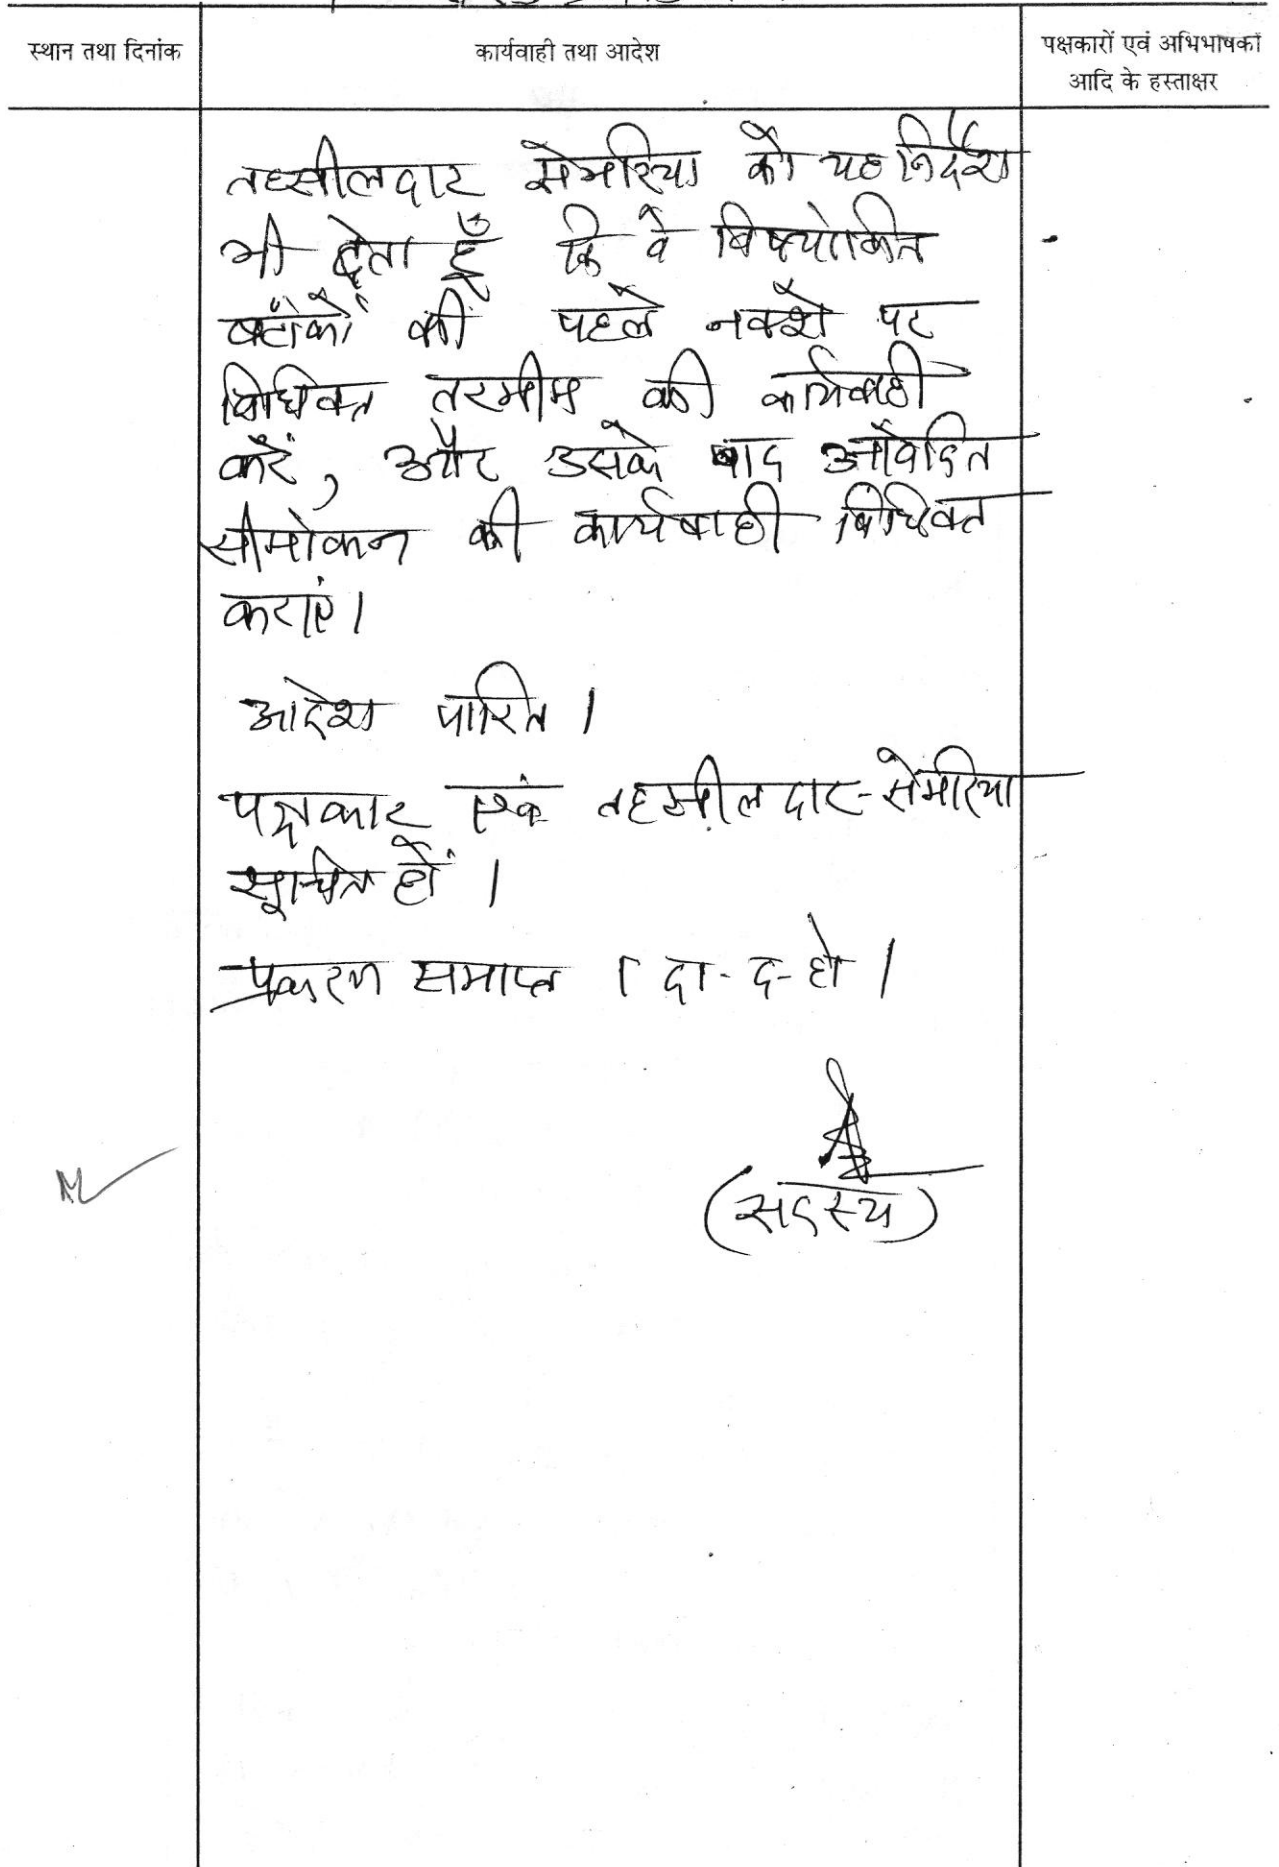 स्थान तथा दिनांक
कार्यवाही तथा आदेश
पक्षकारों एवं अभिभाषकों
आदि के हस्ताक्षर
तहसीलदार सेमरिया को यह निर्देश
भी देता हूँ कि वे विषयांकित
बटांकों की पहले नक्शे पर
विधिवत तरमीम की कार्यवाही
करें, और उसके बाद आवेदित
सीमांकन की कार्यवाही विधिवत
कराएं।
आदेश पारित।
पक्षकार एवं तहसीलदार-सेमरिया
सूचित हों।
प्रकरण समाप्त। दा-द-हो।
(सदस्य)